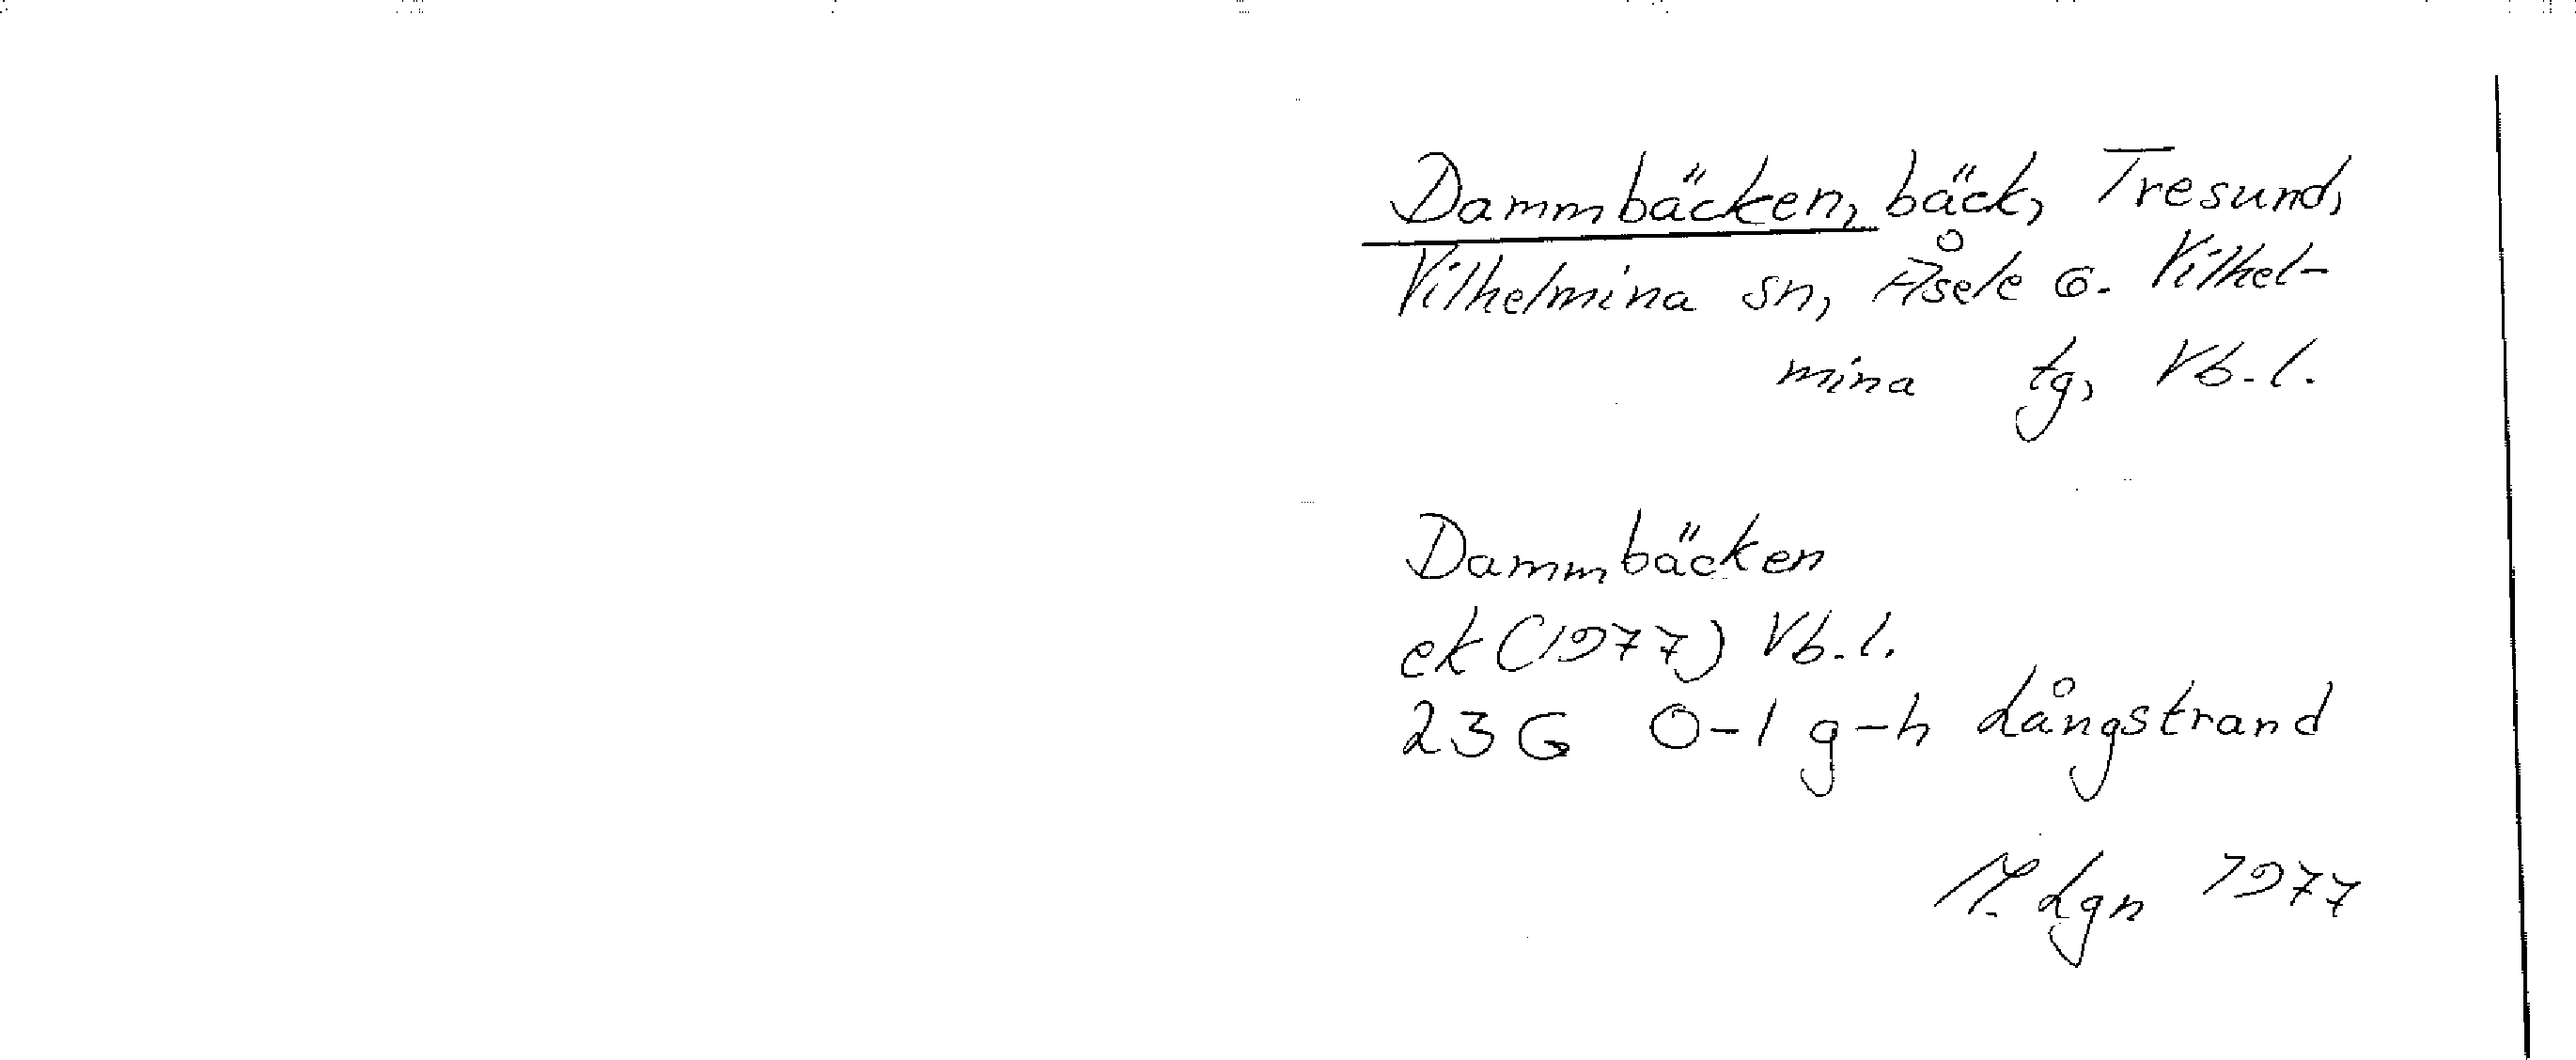 Dammbäcken, bäck, Tresund,
Vilhelmina sn, Åsele o. Vilhel-
mina tg, Vb. l.
Dammbäcken
ek (1977) Vb. l.
23 G 0-1 g-h Långstrand
M. Lgn 1977